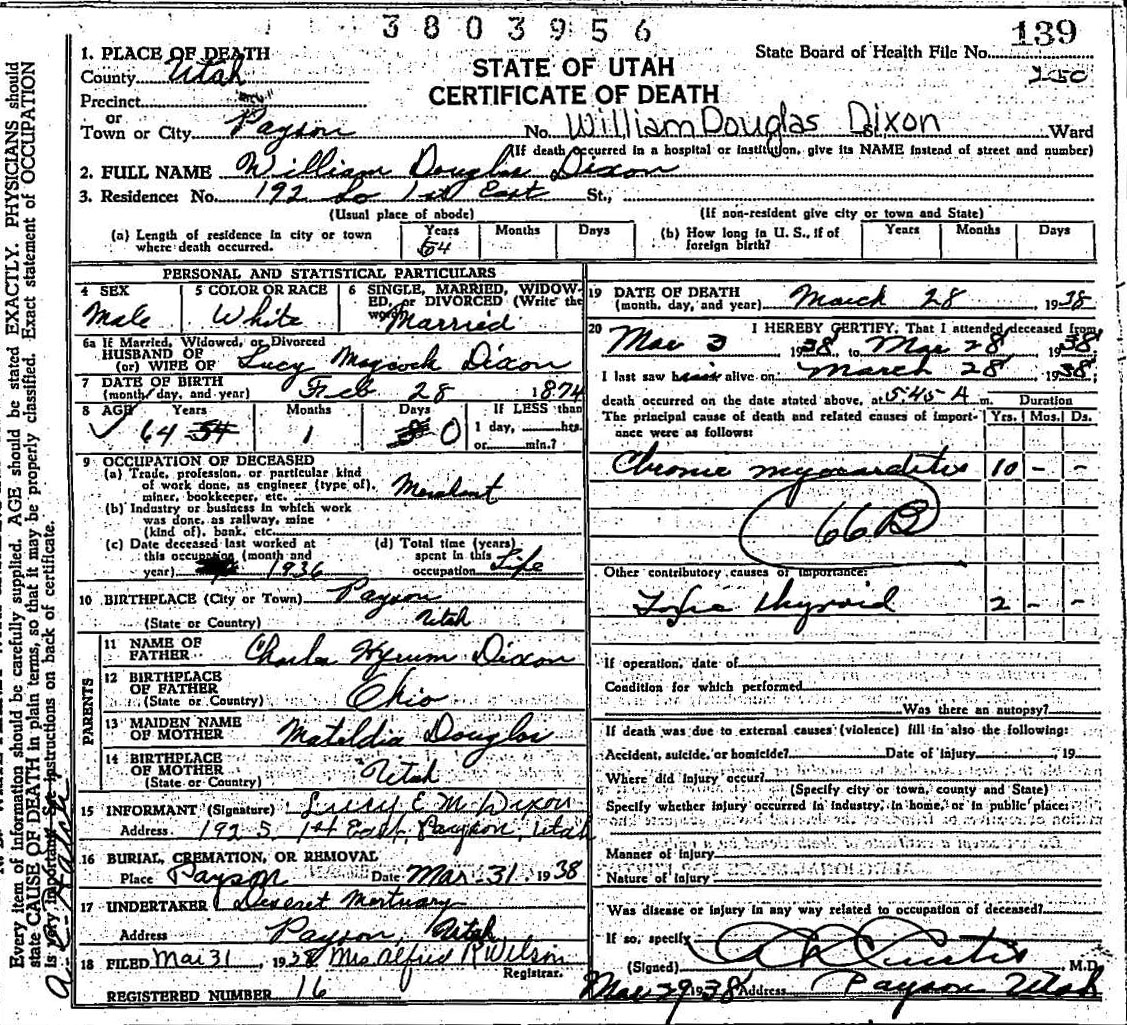 3803956
139
State Board of Health File No.
250
STATE OF UTAH
CERTIFICATE OF DEATH
1. PLACE OF DEATH
County Utah
Precinct
or
Town or City Payson No. William Douglas Dixon Ward
(If death occurred in a hospital or institution, give its NAME instead of street and number)
2. FULL NAME William Douglas Dixon
3. Residence: No. 192 So 1st East St.,
(Usual place of abode) (If non-resident give city or town and State)
(a) Length of residence in city or town where death occurred. Years 64 Months Days
(b) How long in U. S., if of foreign birth? Years Months Days
PERSONAL AND STATISTICAL PARTICULARS
4 SEX Male
5 COLOR OR RACE White
6 SINGLE, MARRIED, WIDOWED, or DIVORCED (Write the word) Married
6a If Married, Widowed, or Divorced
HUSBAND OF
(or) WIFE OF Lucy Maycock Dixon
7 DATE OF BIRTH
(month, day, and year) Feb 28 1874
8 AGE Years 64 54 Months 1 Days 0
If LESS than 1 day, hrs. or min.?
9 OCCUPATION OF DECEASED
(a) Trade, profession, or particular kind
of work done, as engineer (type of),
miner, bookkeeper, etc. Merchant
(b) Industry or business in which work
was done, as railway, mine
(kind of), bank, etc.
(c) Date deceased last worked at
this occupation (month and
year) 1936
(d) Total time (years)
spent in this
occupation Life
10 BIRTHPLACE (City or Town) Payson
(State or Country) Utah
PARENTS
11 NAME OF FATHER Charles Hyrum Dixon
12 BIRTHPLACE OF FATHER
(State or Country) Ohio
13 MAIDEN NAME OF MOTHER Mateldia Douglas
14 BIRTHPLACE OF MOTHER
(State or Country) Utah
15 INFORMANT (Signature) Lucy E M Dixon
Address 192 S. 1st East, Payson, Utah
16 BURIAL, CREMATION, OR REMOVAL
Place Payson Date Mar 31 1938
17 UNDERTAKER Deseret Mortuary
Address Payson, Utah
18 FILED Mar 31, 1938 Mrs Alfred R Wilson
Registrar.
REGISTERED NUMBER 16
19 DATE OF DEATH
(month, day, and year) March 28 1938
20 I HEREBY CERTIFY, That I attended deceased from
Mar 3 1938 to Mar 28 1938,
I last saw him alive on March 28 1938;
death occurred on the date stated above, at 5:45 A m.
The principal cause of death and related causes of importance were as follows:
Duration
Yrs. Mos. Ds.
Chronic myocarditis 10 - -
66B
Other contributory causes of importance:
Toxic thyroid 2 - -
If operation, date of
Condition for which performed
Was there an autopsy?
If death was due to external causes (violence) fill in also the following:
Accident, suicide, or homicide? Date of Injury , 19
Where did injury occur?
(Specify city or town, county and State)
Specify whether injury occurred in industry, in home, or in public place:
Manner of injury
Nature of injury
Was disease or injury in any way related to occupation of deceased?
If so, specify
(Signed) Curtis M.D.
Mar 29 1938 Address Payson Utah
Every item of information should be carefully supplied. AGE should be stated EXACTLY. PHYSICIANS should
state CAUSE OF DEATH in plain terms, so that it may be properly classified. Exact statement of OCCUPATION
is very important. See instructions on back of certificate.